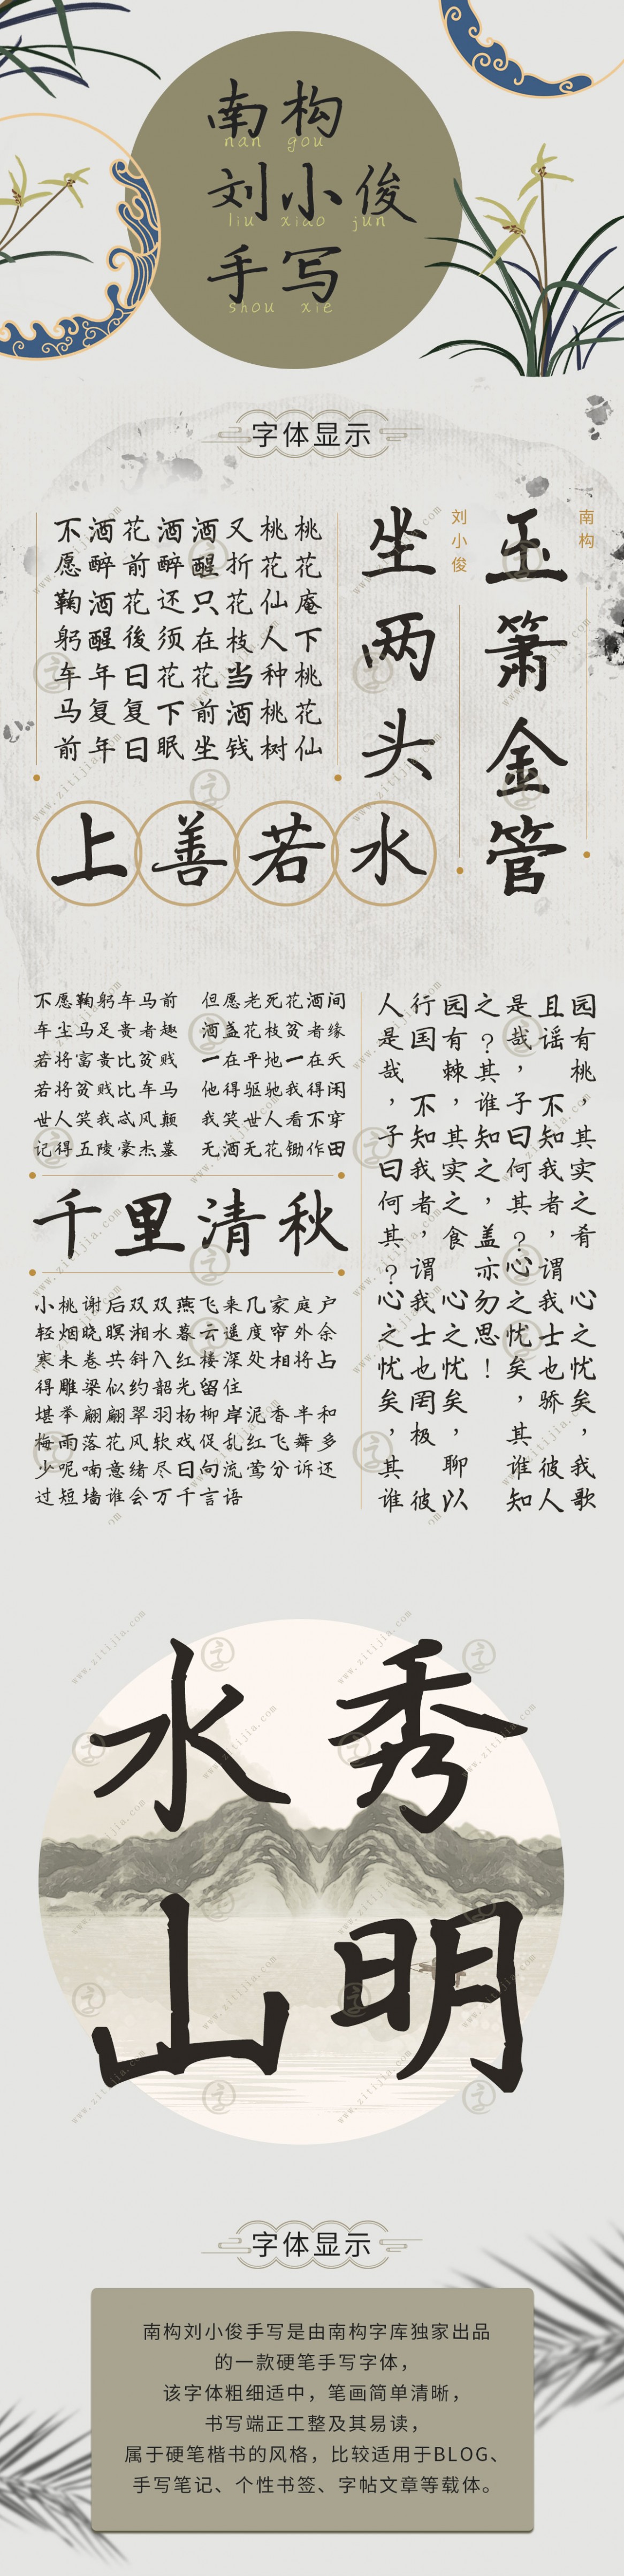 南构
nan gou
刘小俊
liu xiao jun
手写
shou xie
字体显示
南构
玉箫金管
刘小俊
坐两头
桃花庵下桃花仙
桃花仙人种桃树
又折花枝当酒钱
酒醒只在花前坐
酒醉还须花下眠
花前花後日复日
酒醉酒醒年复年
不愿鞠躬车马前
上善若水
园有桃，其实之肴 心之忧矣，我歌
且谣 不知我者，谓我士也骄 彼人
是哉，子曰何其？心之忧矣，其谁知
之？其谁知之，盖亦勿思！
园有棘，其实之食 心之忧矣，聊以
行国 不知我者，谓我士也罔极 彼
人是哉，子曰何其？心之忧矣，其谁
不愿鞠躬车马前 但愿老死花酒间
车尘马足贵者趣 酒盏花枝贫者缘
若将富贵比贫贱 一在平地一在天
若将贫贱比车马 他得驱驰我得闲
世人笑我忒风颠 我笑世人看不穿
记得五陵豪杰墓 无酒无花锄作田
千里清秋
小桃谢后双双燕飞来几家庭户
轻烟晓暝湘水暮云遥度帘外余
寒未卷共斜入红楼深处相将占
得雕梁似约韶光留住
堪举翩翩翠羽杨柳岸泥香半和
梅雨落花风软戏促乱红飞舞多
少呢喃意绪尽日向流莺分诉还
过短墙谁会万千言语
水秀
山明
www.zitijia.com
字体显示
南构刘小俊手写是由南构字库独家出品
的一款硬笔手写字体，
该字体粗细适中，笔画简单清晰，
书写端正工整及其易读，
属于硬笔楷书的风格，比较适用于BLOG、
手写笔记、个性书签、字帖文章等载体。